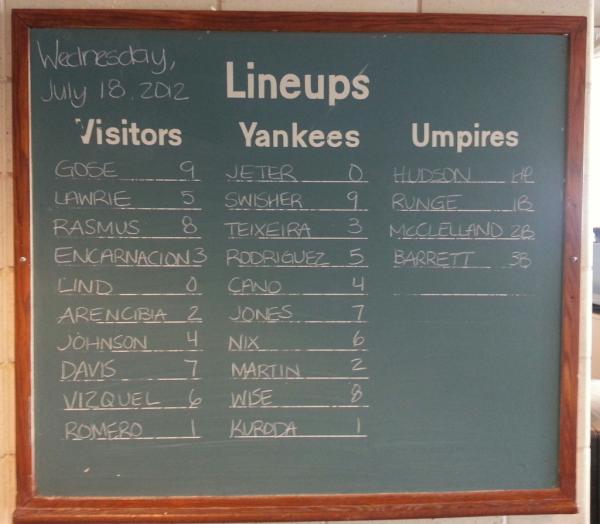 Wednesday,
July 18, 2012
Lineups
Visitors
GOSE 9
LAWRIE 5
RASMUS 8
ENCARNACION 3
LIND 0
ARENCIBIA 2
JOHNSON 4
DAVIS 7
VIZQUEL 6
ROMERO 1
Yankees
JETER 0
SWISHER 9
TEIXEIRA 3
RODRIGUEZ 5
CANO 4
JONES 7
NIX 6
MARTIN 2
WISE 8
KURODA 1
Umpires
HUDSON HP
RUNGE 1B
MCCLELLAND 2B
BARRETT 3B